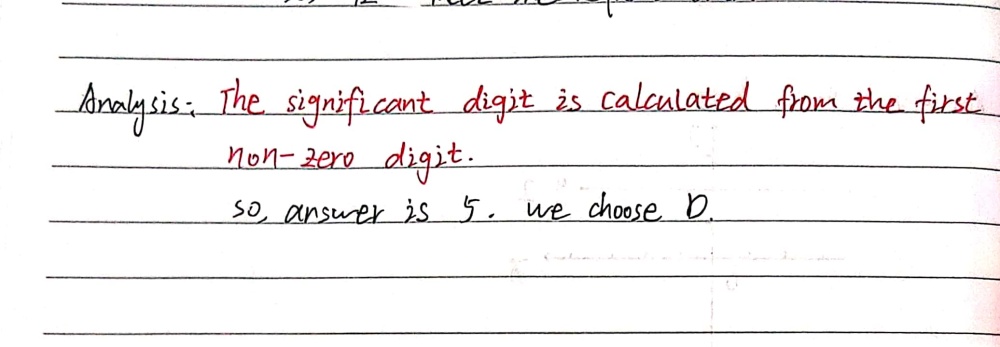 Analysis: The significant digit is calculated from the first
non-zero digit.
so, answer is 5. we choose D.